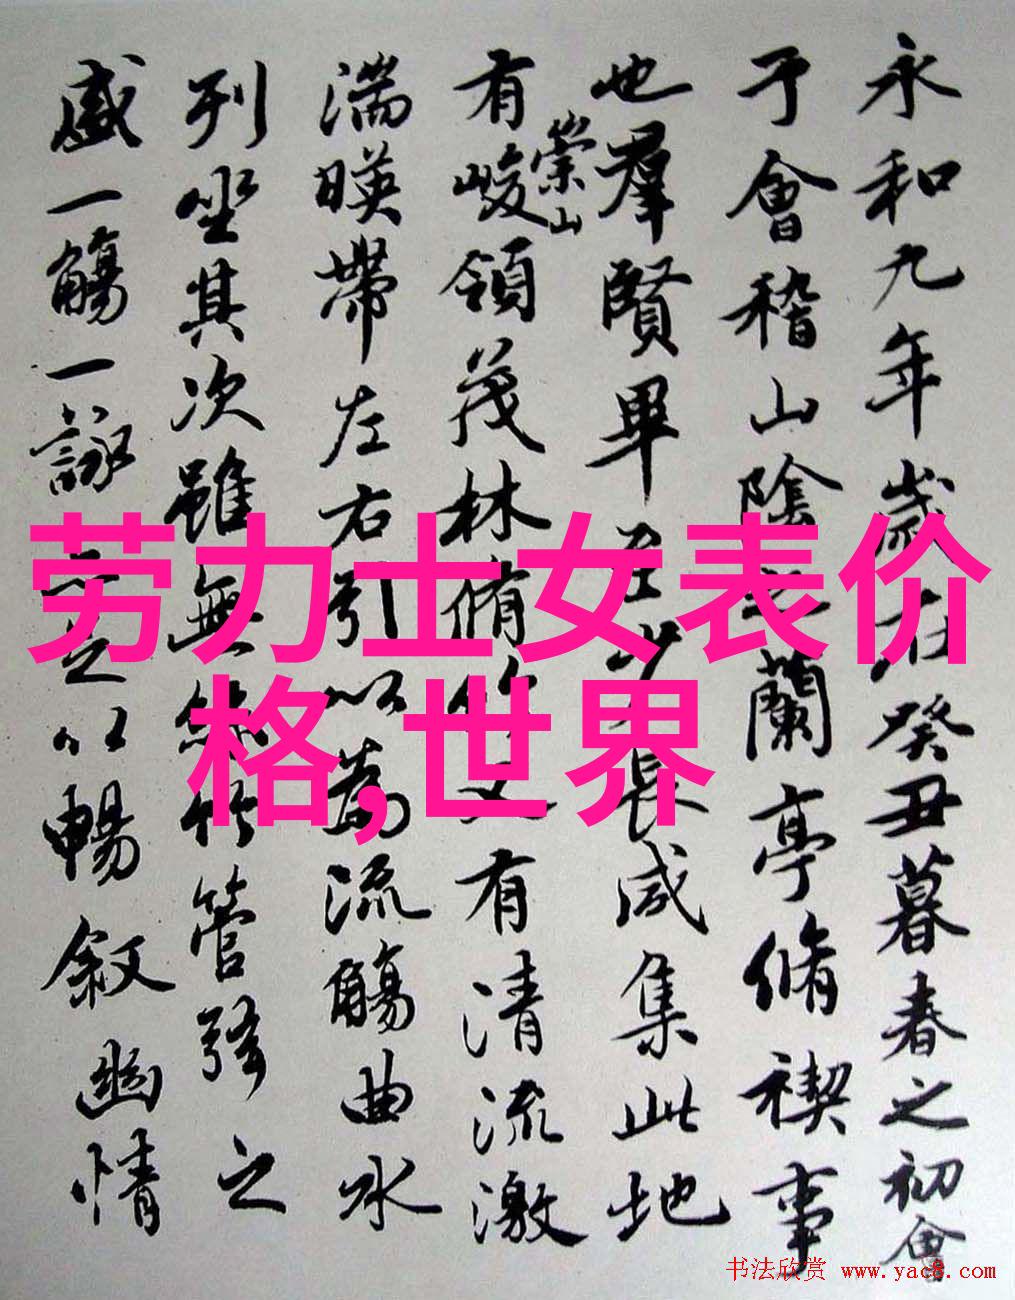 永和九年歲在癸丑暮春之初會
于會稽山陰之蘭亭脩禊事
也羣賢畢至少長咸集此地
有崇山峻領茂林脩竹又有清流激
湍暎帶左右引以為流觴曲水
列坐其次雖無絲竹管弦之
盛一觴一詠亦足以暢敘幽情
劳力士女表价
格,世界
书法欣赏 www.yac8.com